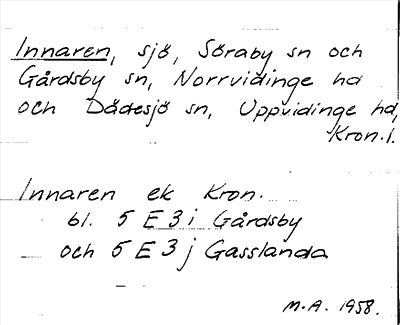 Innaren, sjö, Söraby sn och
Gårdsby sn, Norrvidinge hd
och Dädesjö sn, Uppvidinge hd,
Kron. l.
Innaren ek Kron.
bl. 5 E 3 i Gårdsby
och 5 E 3 j Gasslanda
M.A. 1958.